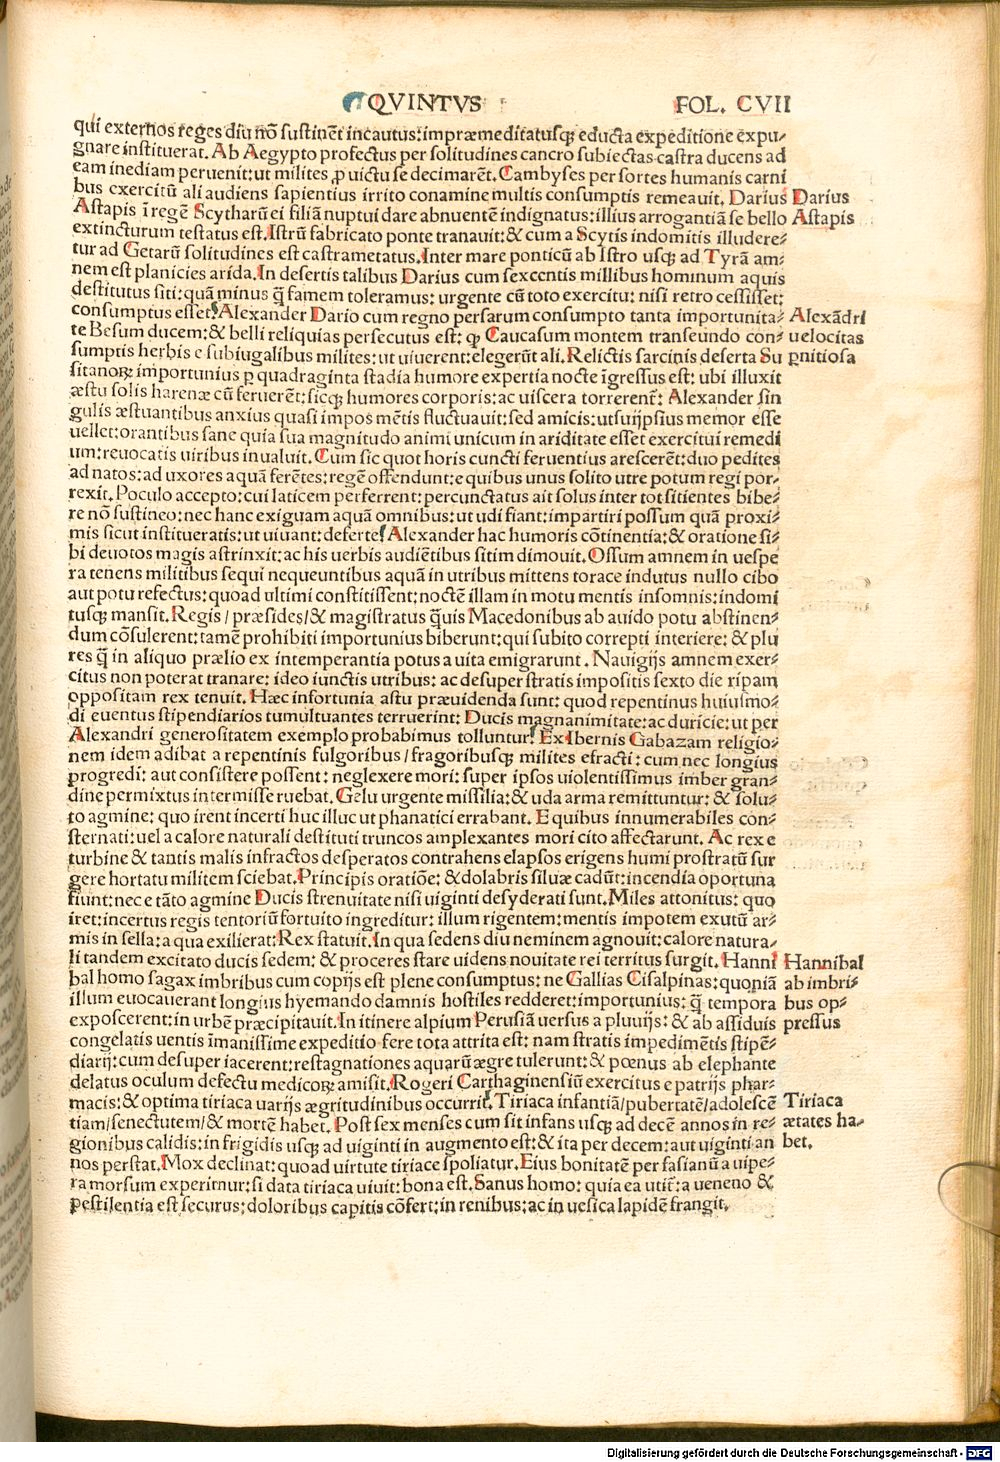 QVINTVS FOL. CVII
qui externos reges diu nō sustinēt incautus: impræmeditatusq; educta expeditione expu-
gnare instituerat. Ab Aegypto profectus per solitudines cancro subiectas castra ducens ad
eam inediam peruenit: ut milites ꝓ uictu se decimarēt. Cambyses per sortes humanis carni
bus exercitū ali audiens sapientius irrito conamine multis consumptis remeauit. Darius
Astapis ī regē Scytharū ei filiā nuptui dare abnuentē indignatus: illius arrogantiā se bello
extincturum testatus est. Istrū fabricato ponte tranauit: & cum a Scytis indomitis illudere-
tur ad Getarū solitudines est castrametatus. Inter mare ponticū ab Istro usq; ad Tyrā am-
nem est planicies arida. In desertis talibus Darius cum sexcentis millibus hominum aquis
destitutus siti: quā minus q̄ famem toleramus: urgente cū toto exercitu: nisi retro cessisset:
consumptus esset. Alexander Dario cum regno persarum consumpto tanta importunita-
te Besum ducem: & belli reliquias persecutus est: ꝙ Caucasum montem transeundo con-
sumptis herbis e subiugalibus milites: ut uiuerent: elegerūt ali. Relictis sarcinis deserta Su
sitanoꝝ importunius ꝑ quadraginta stadia humore expertia nocte īgressus est: ubi illuxit
æstu solis harenæ cū feruerēt: sicq; humores corporis: ac uiscera torrerent: Alexander sin
gulis æstuantibus anxius quasi impos mētis fluctuauit: sed amicis: ut suijpsius memor esse
uellet: orantibus sane quia sua magnitudo animi unicum in ariditate esset exercitui remedi
um: reuocatis uiribus inualuit. Cum sic quot horis cuncti feruentius arescerēt: duo pedites
ad natos: ad uxores aquā ferētes: regē offendunt: e quibus unus solito utre potum regi por-
rexit. Poculo accepto: cui laticem perferrent: percunctatus ait solus inter tot sitientes bibe-
re nō sustineo: nec hanc exiguam aquā omnibus: ut udi fiant: impartiri possum quā proxi-
mis sicut institueratis: ut uiuant: deferte. Alexander hac humoris cōtinentia: & oratione si-
bi deuotos magis astrinxit: ac his uerbis audiētibus sitim dimouit. Ossum amnem in uespe
ra tenens militibus sequi nequeuntibus aquā in utribus mittens torace indutus nullo cibo
aut potu refectus: quoad ultimi constitissent: noctē illam in motu mentis insomnis: indomi
tusq; mansit. Regis / præsides / & magistratus q̄uis Macedonibus ab auido potu abstinen-
dum cōsulerent: tamē prohibiti importunius biberunt: qui subito correpti interiere: & plu
res q̄ in aliquo prælio ex intemperantia potus a uita emigrarunt. Nauigijs amnem exer-
citus non poterat tranare: ideo iunctis utribus: ac desuper stratis impositis sexto die ripam
oppositam rex tenuit. Hæc infortunia astu præuidenda sunt: quod repentinus huiusmo-
di euentus stipendiarios tumultuantes terruerint: Ducis magnanimitate: ac duricie: ut per
Alexandri generositatem exemplo probabimus tolluntur. Ex Ibernis Gabazam religio-
nem idem adibat a repentinis fulgoribus / fragoribusq; milites efracti: cum nec longius
progredi: aut consistere possent: neglexere mori: super ipsos uiolentissimus imber gran-
dine permixtus intermisse ruebat. Gelu urgente missilia: & uda arma remittuntur: & solu-
to agmine: quo irent incerti huc illuc ut phanatici errabant. E quibus innumerabiles con-
sternati: uel a calore naturali destituti truncos amplexantes mori cito affectarunt. Ac rex e
turbine & tantis malis infractos desperatos contrahens elapsos erigens humi prostratū sur
gere hortatu militem sciebat. Principis oratiōe: & dolabris siluæ cadūt: incendia oportuna
fiunt: nec e tāto agmine Ducis strenuitate nisi uiginti desyderati sunt. Miles attonitus: quo
iret: incertus regis tentoriū fortuito ingreditur: illum rigentem: mentis impotem exutū ar-
mis in sella: a qua exilierat: Rex statuit. In qua sedens diu neminem agnouit: calore natura-
li tandem excitato ducis sedem: & proceres stare uidens nouitate rei territus surgit. Hanni
bal homo sagax imbribus cum copijs est plene consumptus: ne Gallias Cisalpinas: quoniā
illum euocauerant longius hyemando damnis hostiles redderet: importunius: q̄ tempora
exposcerent: in urbē præcipitauit. In itinere alpium Perusiā uersus a pluuijs: & ab assiduis
congelatis uentis īmanissime expeditio fere tota attrita est: nam stratis impedimētis stipē-
diarij: cum desuper iacerent: restagnationes aquarū ægre tulerunt: & pœnus ab elephante
delatus oculum defectu medicoꝝ amisit. Rogeri Carthaginensiū exercitus e patrijs phar-
macis: & optima tiriaca uarijs ægritudinibus occurrit. Tiriaca infantiā/pubertatē/adolescē
tiam/senectutem/& mortē habet. Post sex menses cum sit infans usq; ad decē annos in re-
gionibus calidis: in frigidis usq; ad uiginti in augmento est: & ita per decem: aut uiginti an
nos perstat. Mox declinat: quoad uirtute tiriace spoliatur. Eius bonitatē per fasianū a uipe-
ra morsum experitnur: si data tiriaca uiuit: bona est. Sanus homo: quia ea utiť: a ueneno &
pestilentia est securus: doloribus capitis cōfert: in renibus: ac in uesica lapidē frangit.
Darius
Astapis
Alexādri
uelocitas
ꝑnitiosa
Hannibal
ab imbri-
bus op-
pressus
Tiriaca
ætates ha-
bet.
Digitalisierung gefördert durch die Deutsche Forschungsgemeinschaft - DFG